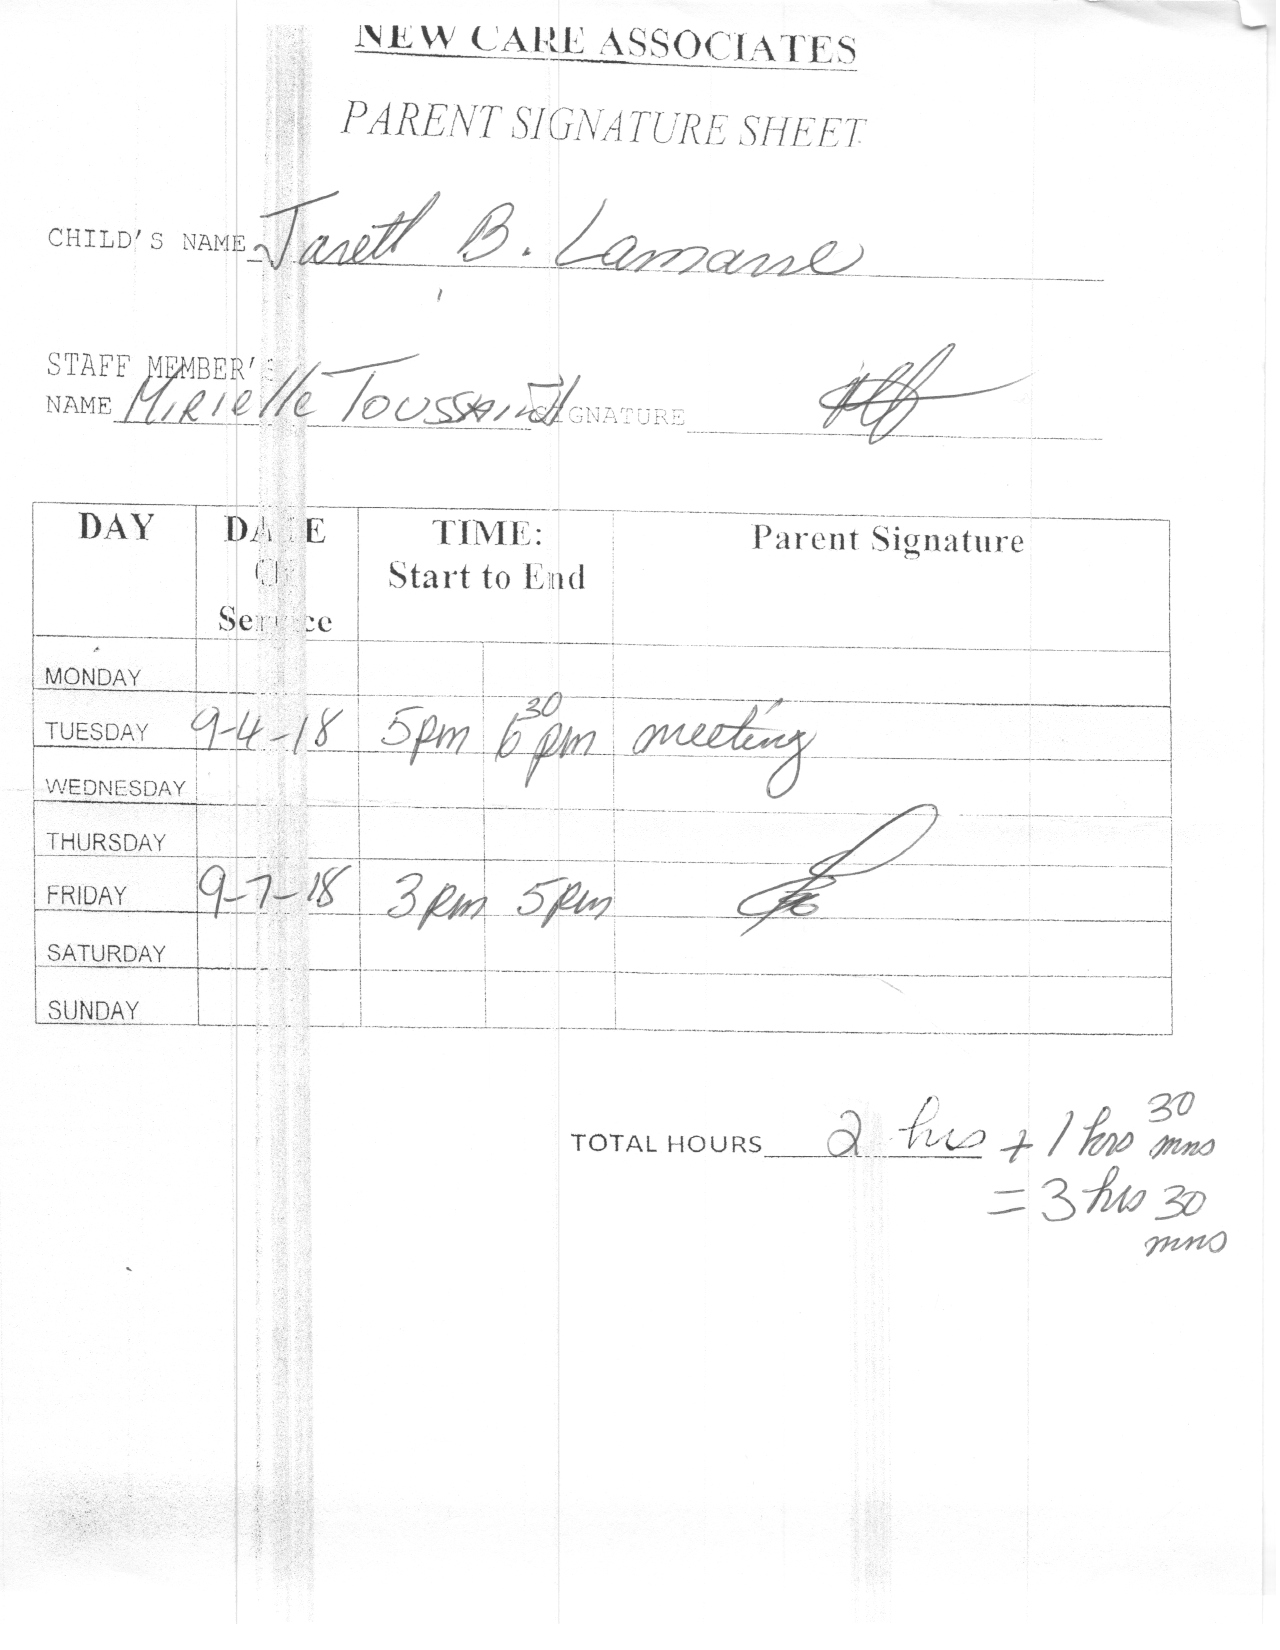 NEW CARE ASSOCIATES
PARENT SIGNATURE SHEET
CHILD'S NAME Jareth B. Lamarre
STAFF MEMBER'S
NAME Mirielle Toussaint SIGNATURE
DAY DATE OF Service TIME: Start to End Parent Signature
MONDAY
TUESDAY 9-4-18 5pm 6 30 pm meeting
WEDNESDAY
THURSDAY
FRIDAY 9-7-18 3pm 5pm
SATURDAY
SUNDAY
TOTAL HOURS 2 hrs + 1 hrs 30 mns
= 3 hrs 30
mns